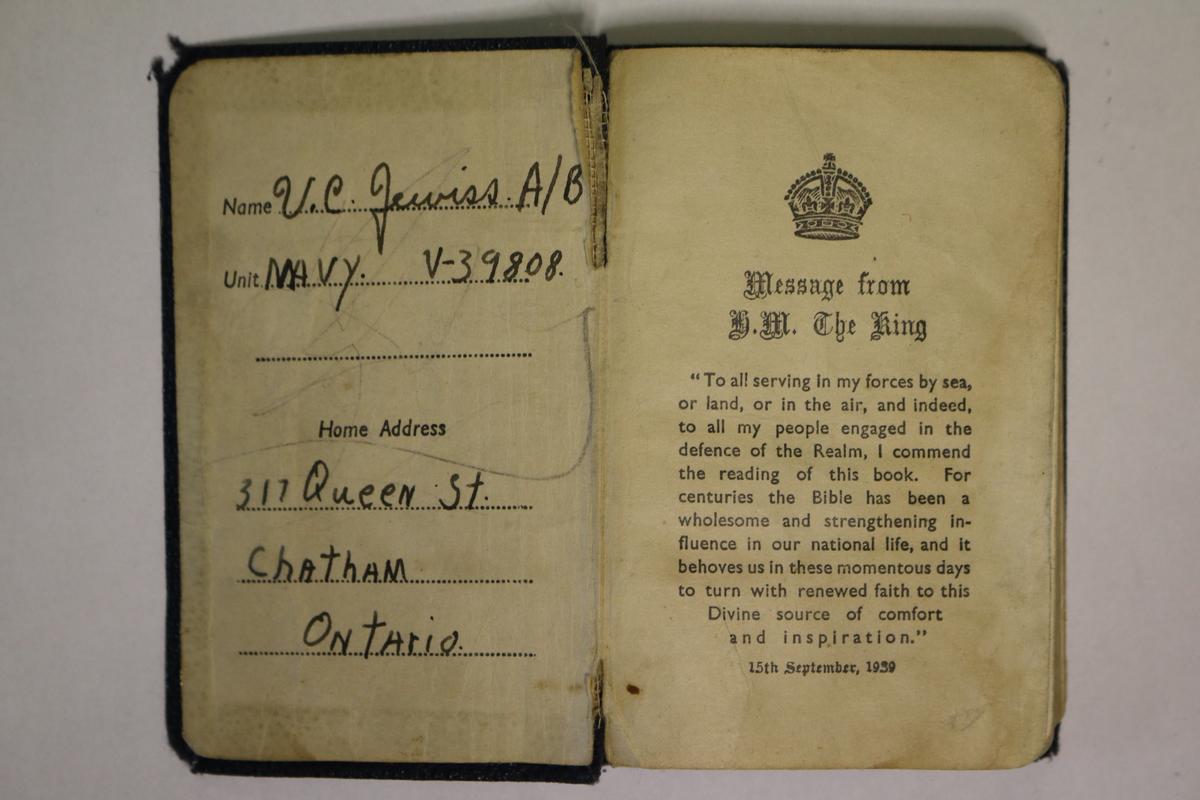 Name V.C. Jewiss. A/B
Unit NAVY. V-39808.
Home Address
317 Queen St.
Chatham
Ontario.
Message from
H.M. The King
"To all serving in my forces by sea,
or land, or in the air, and indeed,
to all my people engaged in the
defence of the Realm, I commend
the reading of this book. For
centuries the Bible has been a
wholesome and strengthening in-
fluence in our national life, and it
behoves us in these momentous days
to turn with renewed faith to this
Divine source of comfort
and inspiration."
15th September, 1939